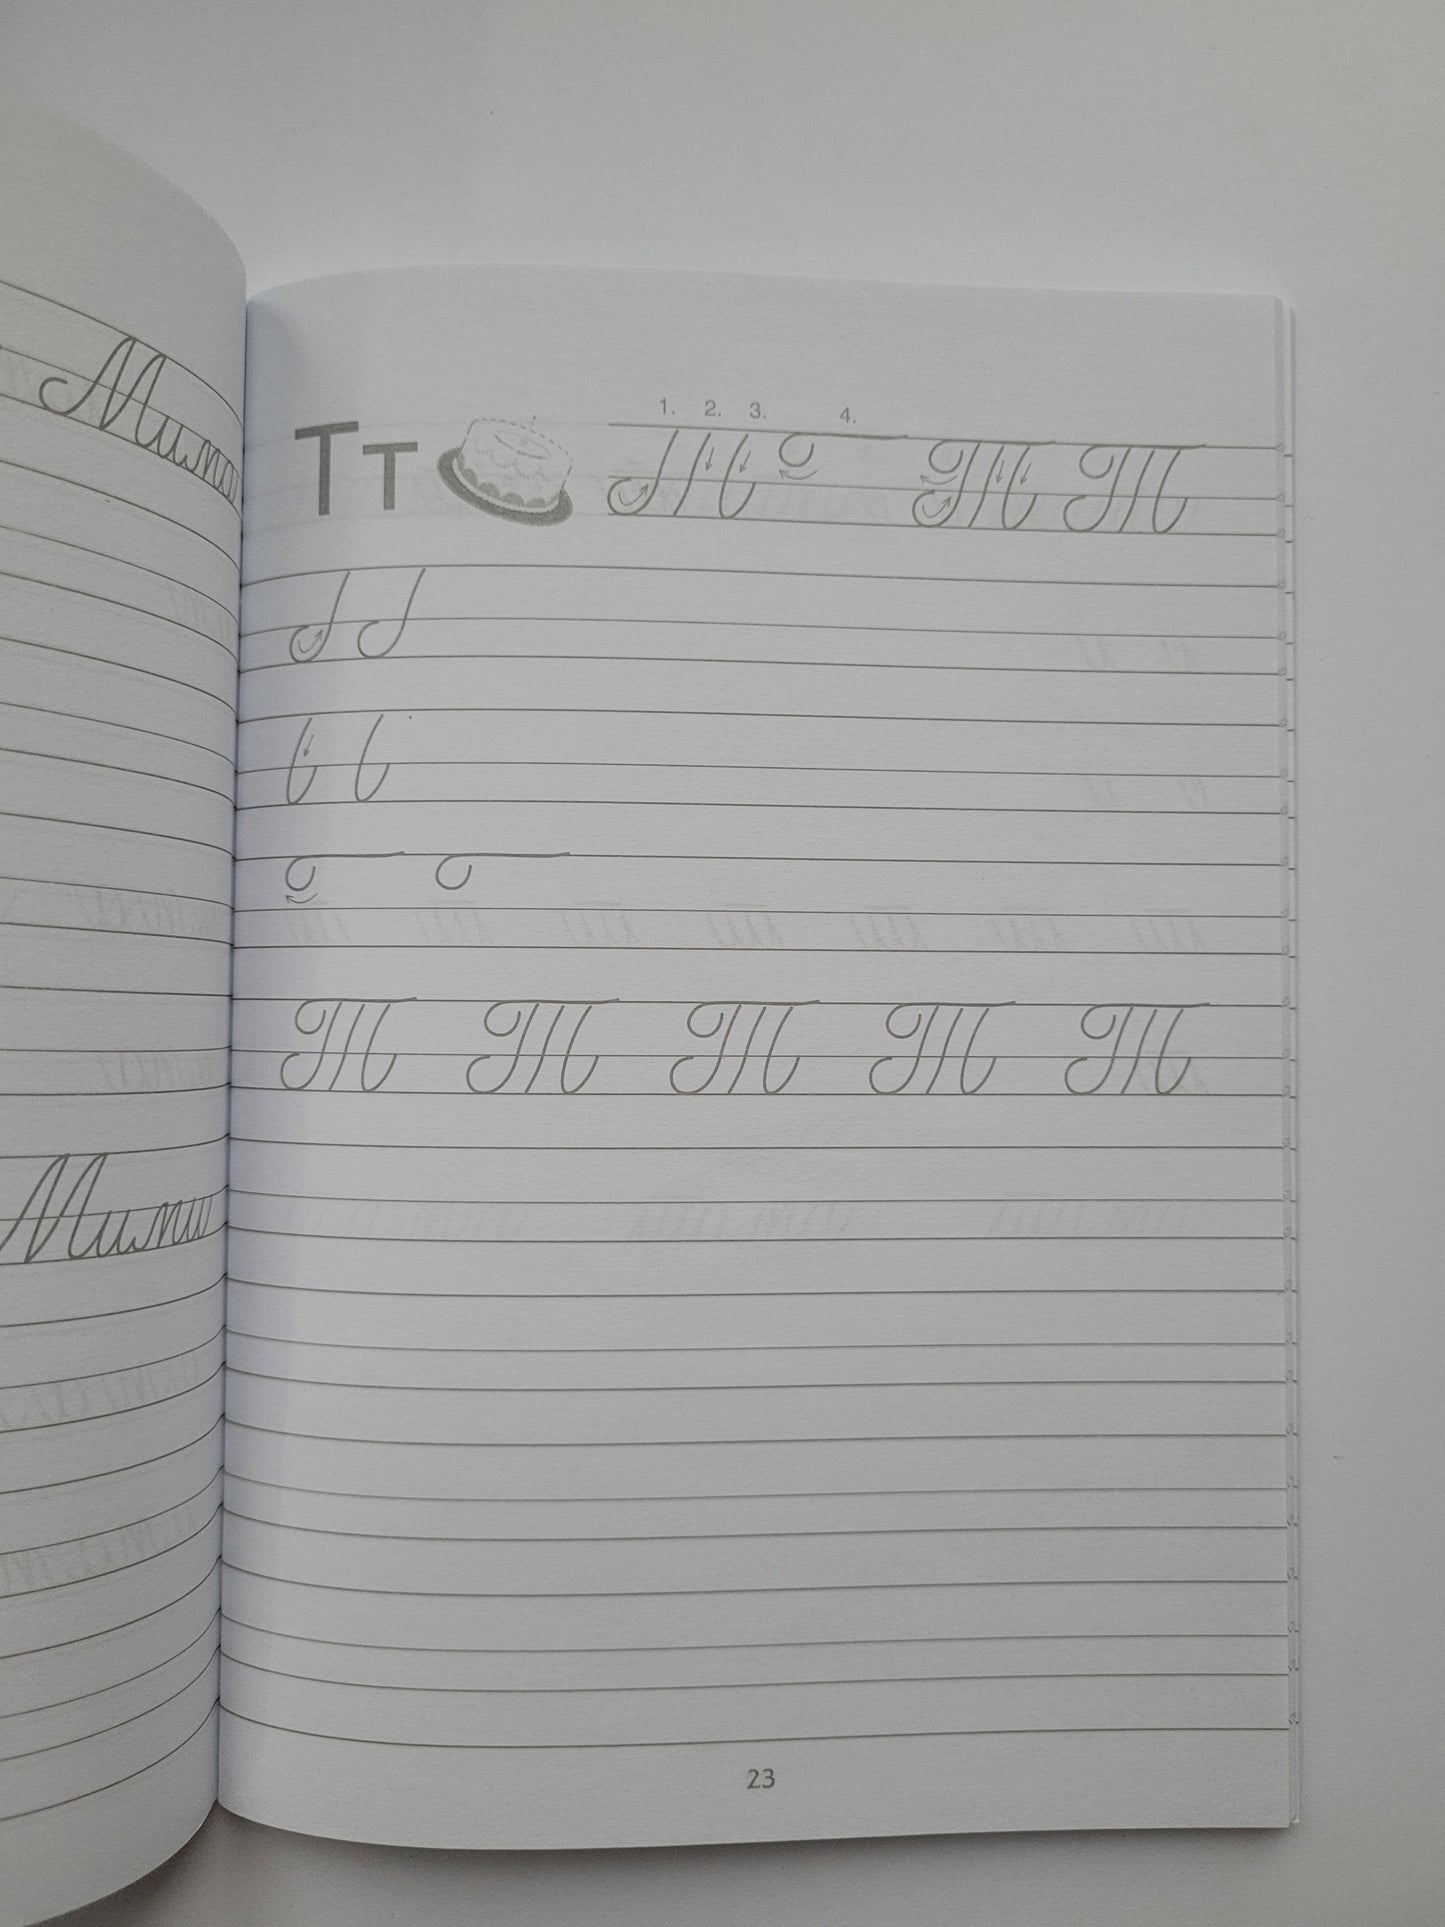 Мими
Тт
1. 2. 3. 4.
Т Т Т
Т Т Т Т Т
23